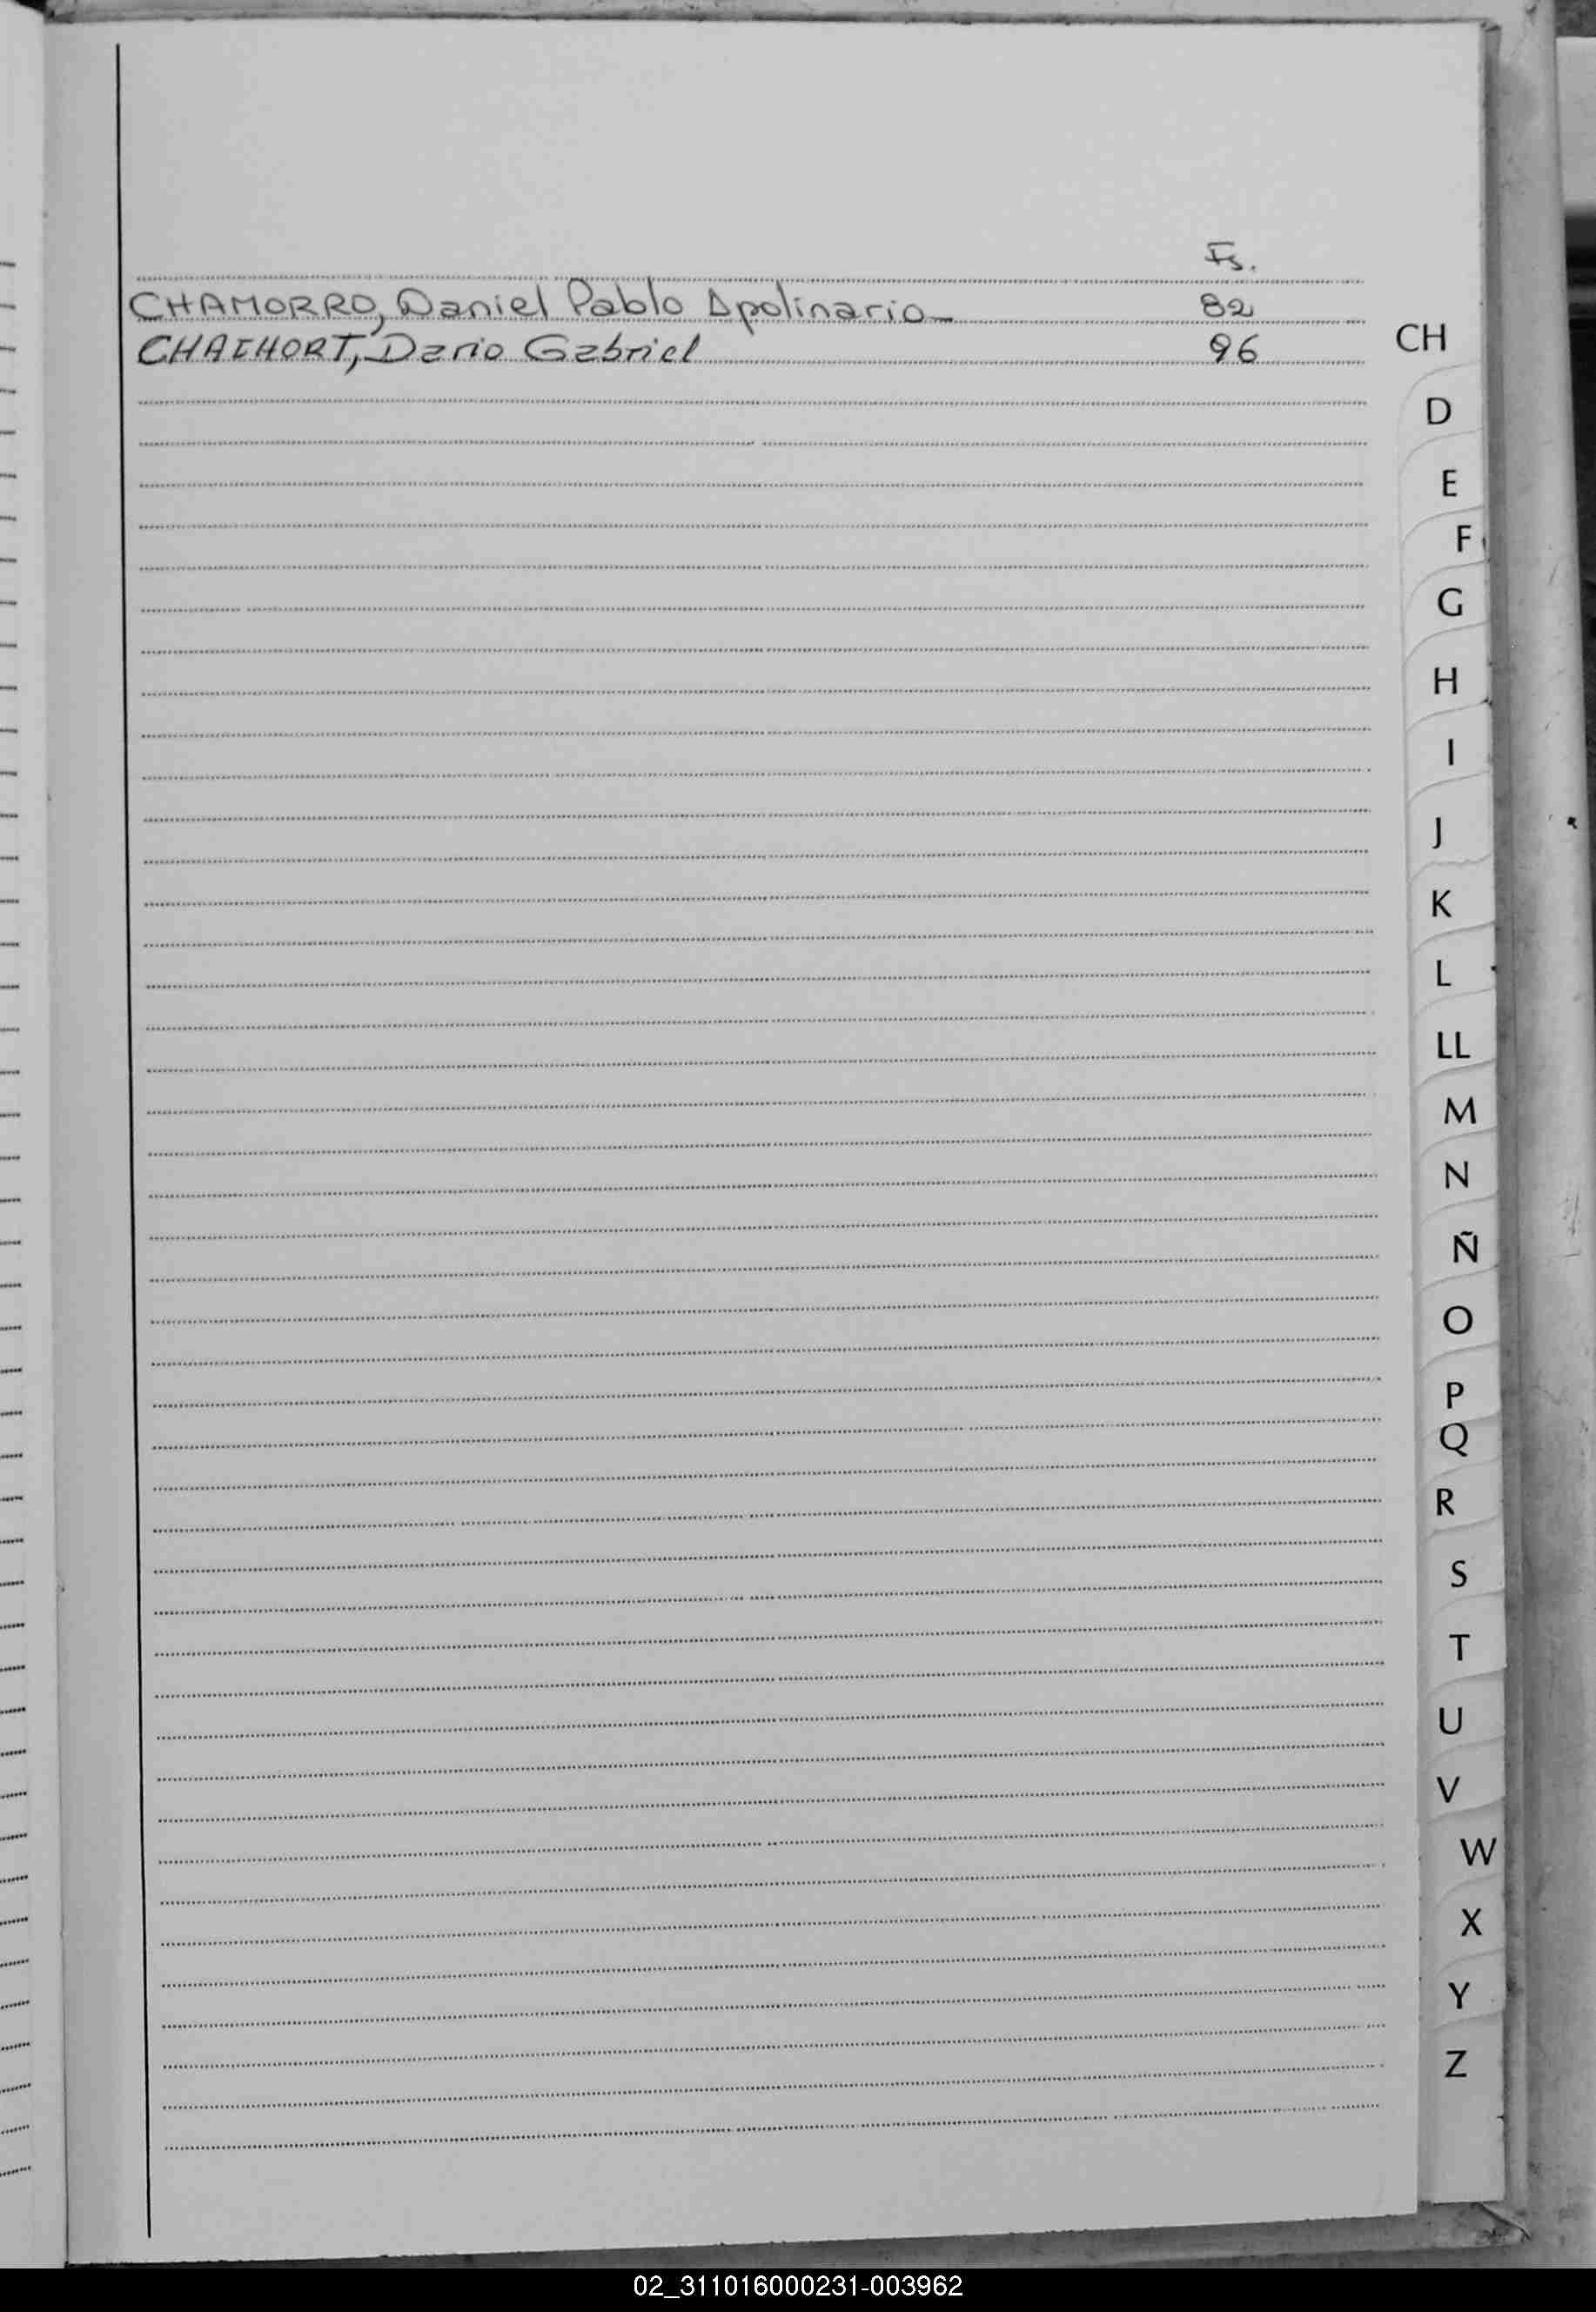 Fs.
CHAMORRO, Daniel Pablo Apolinario 82
Dario Gabriel 96
CH
D
E
F
G
H
I
J
K
L
LL
M
N
Ñ
O
P
Q
R
S
T
U
V
W
X
Y
Z
02_311016000231-003962